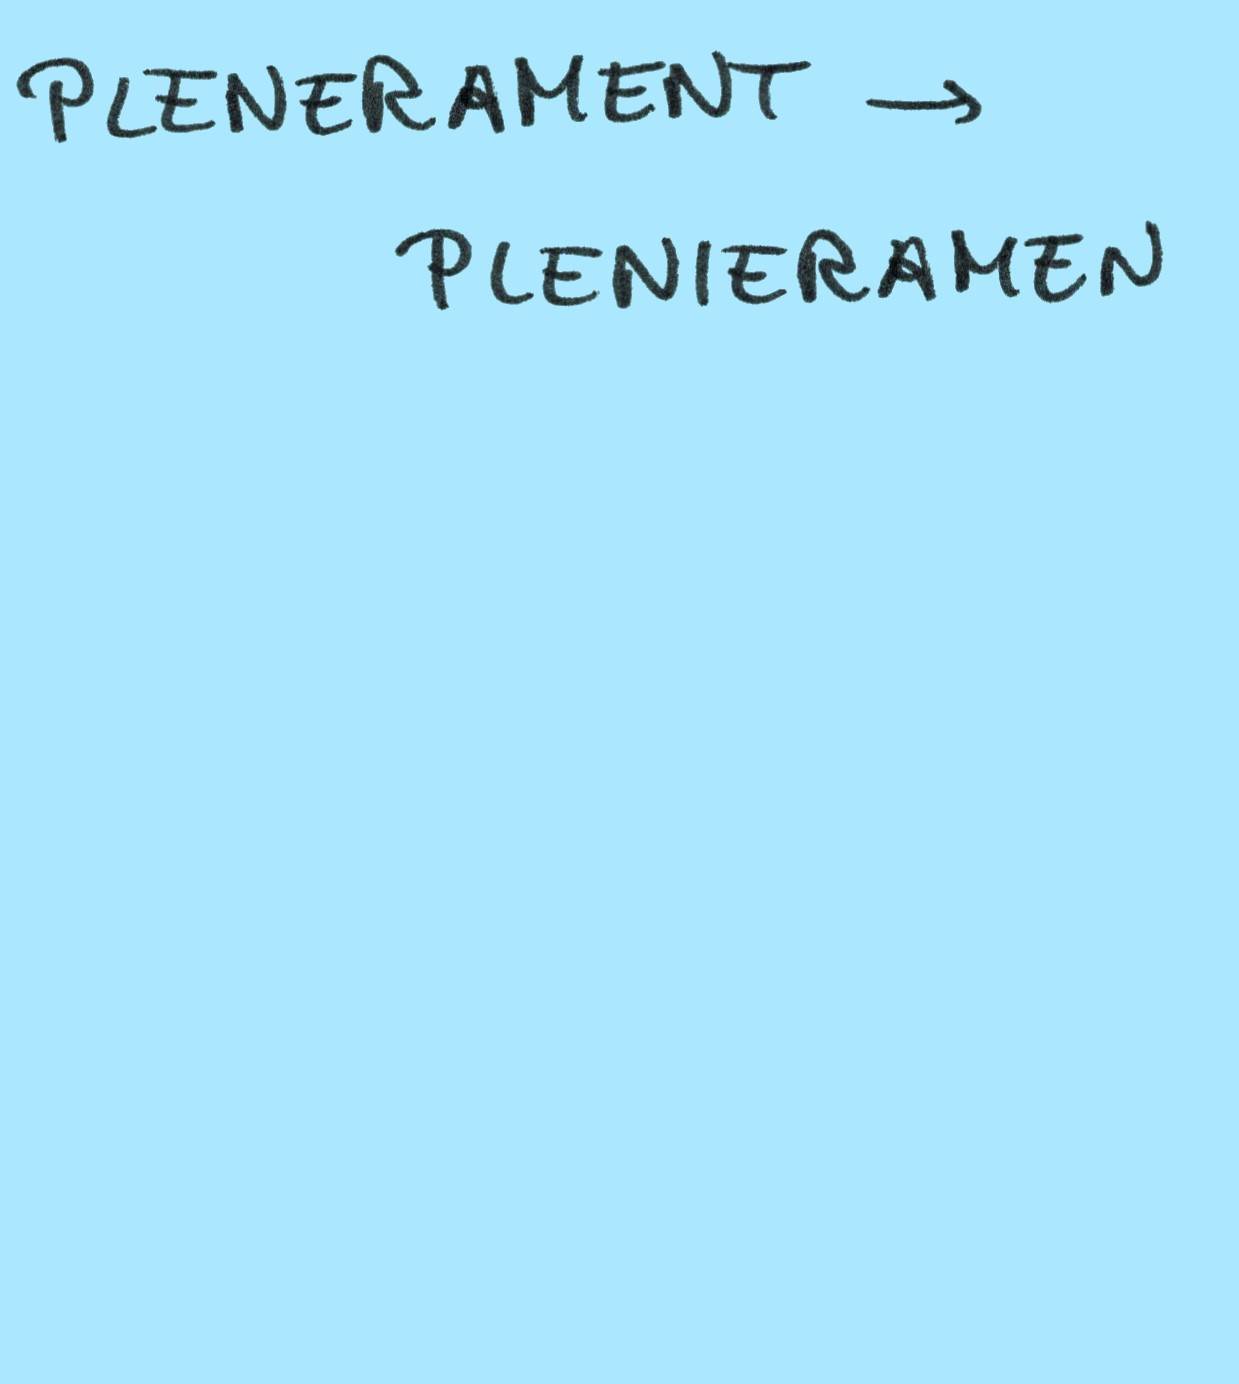 PLENERAMENT →
PLENIERAMEN